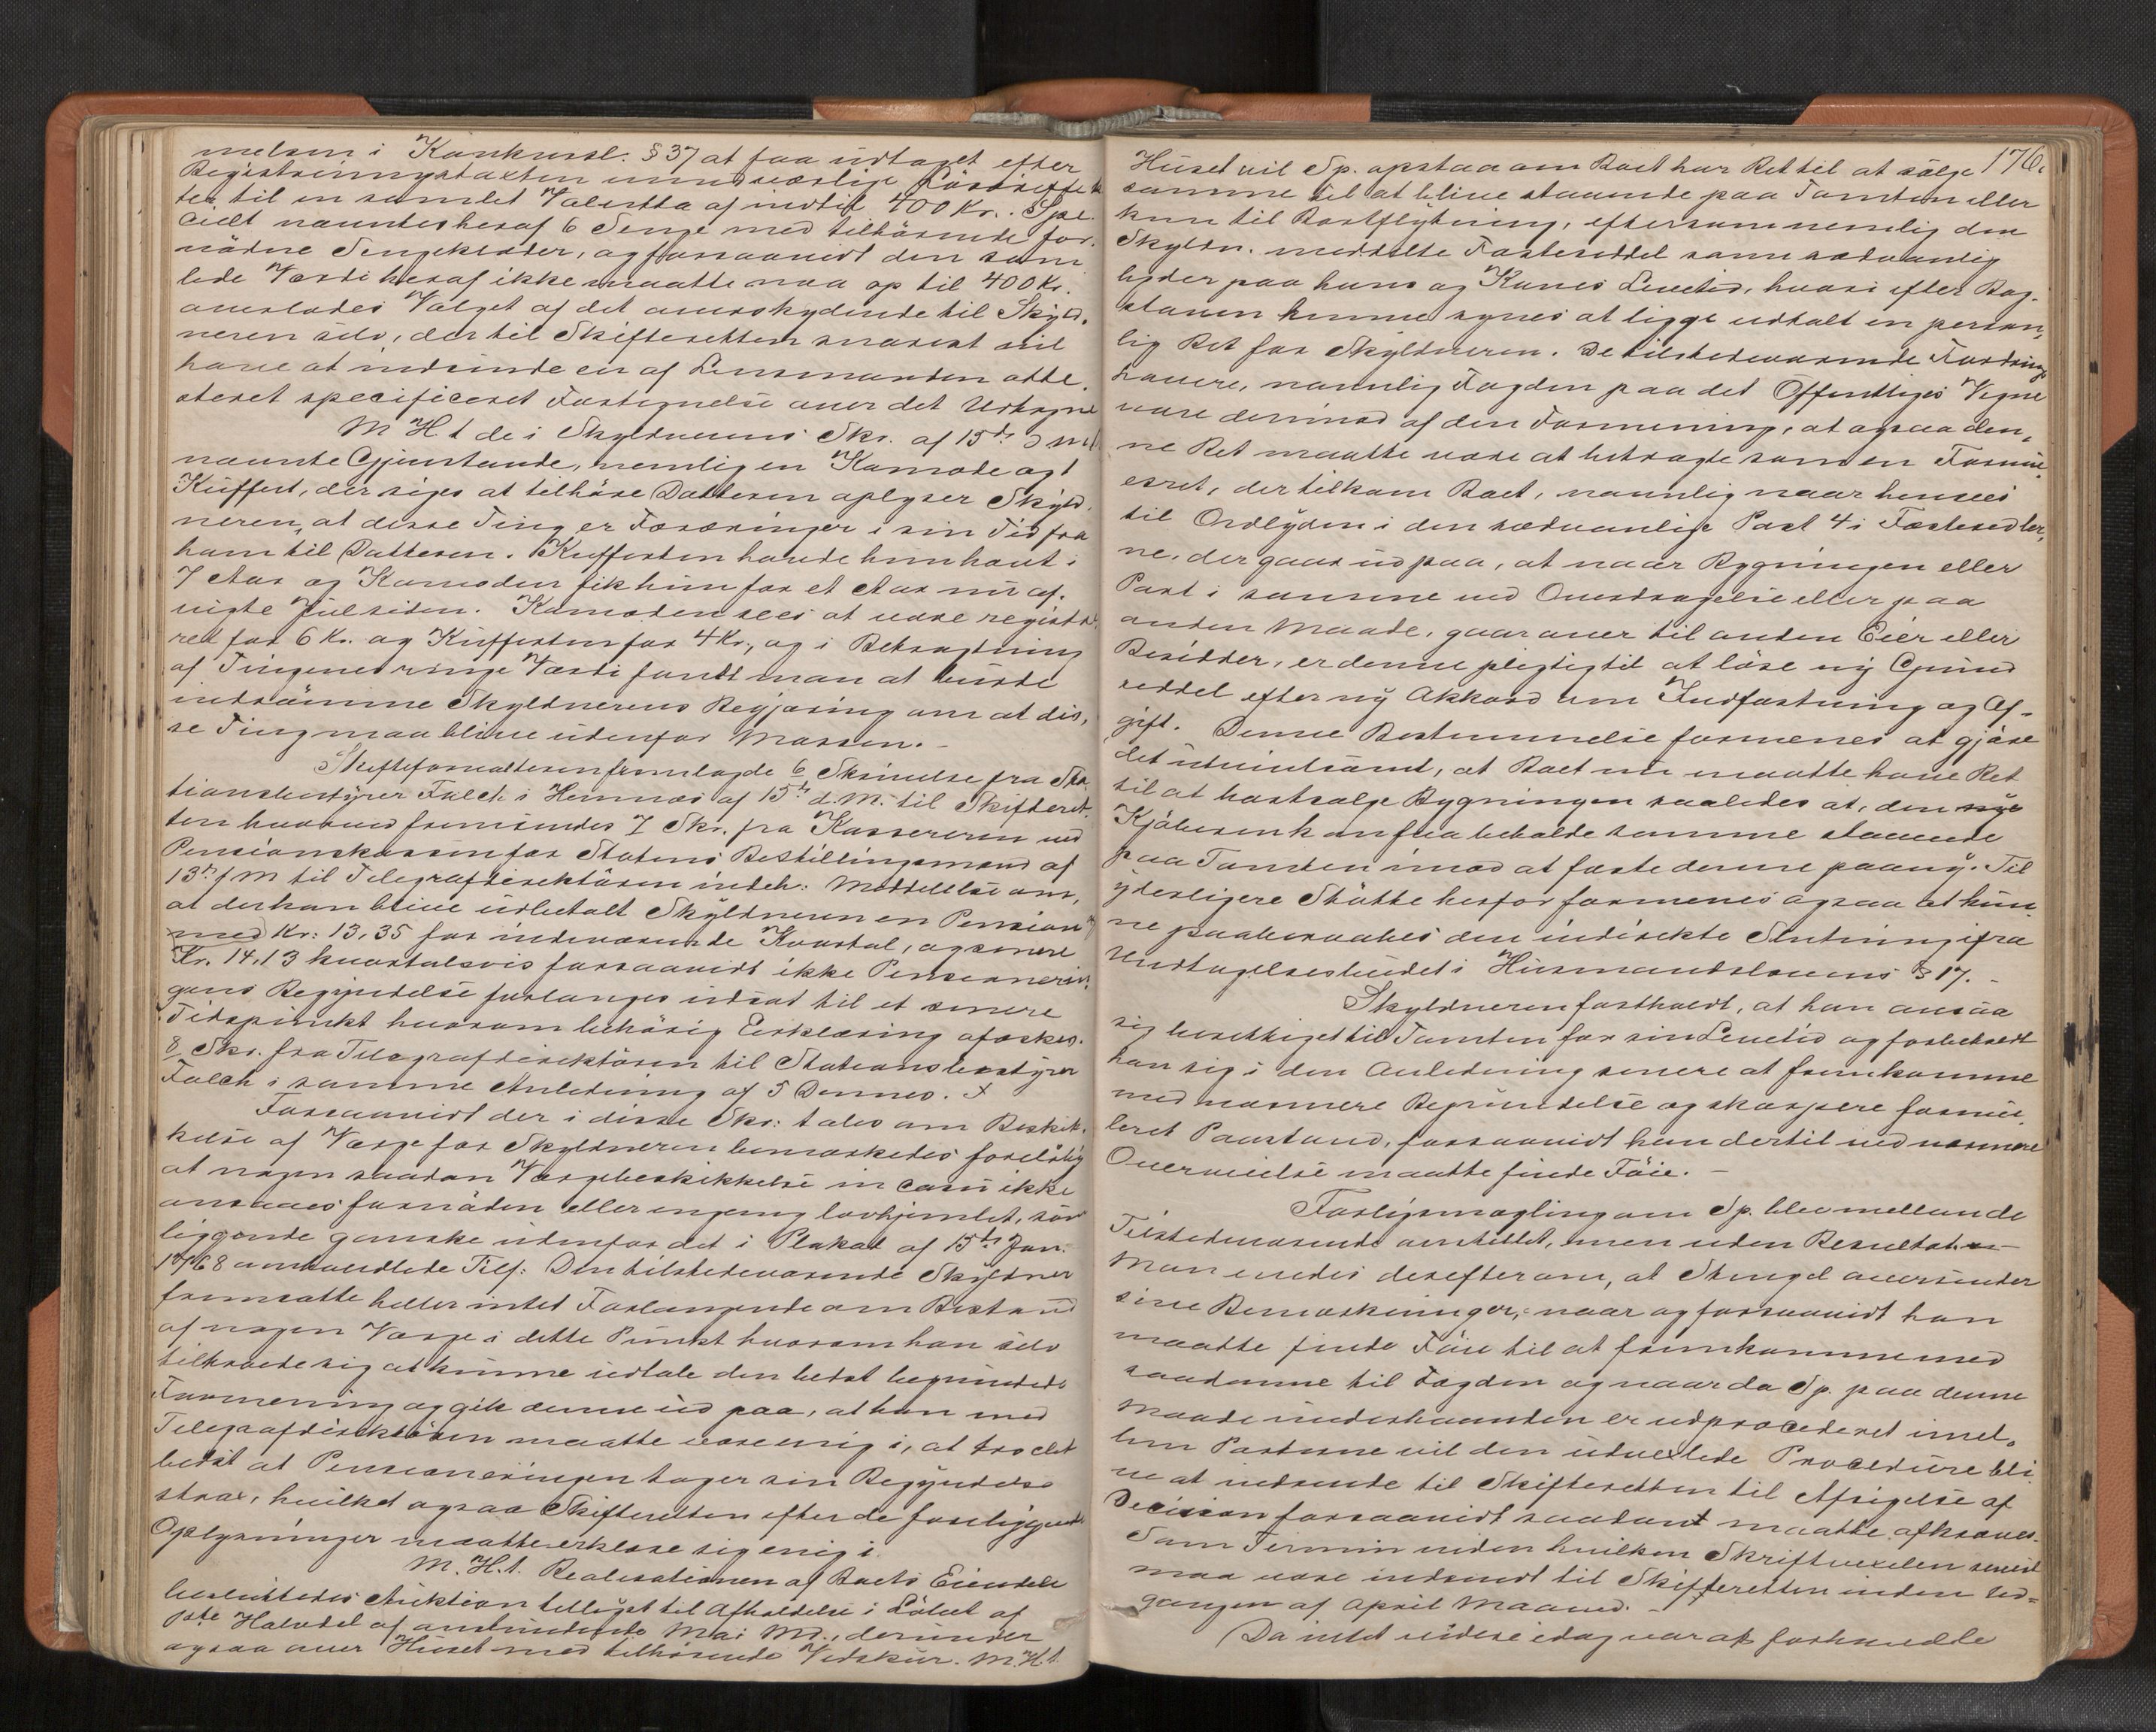 melsen i Konkursl. § 37 at faa udtaget efter
Registreringstaxten undværlige Løsøreffek
ter til en samlet Valuta af indtil 400 Kr. Spe-
cielt nævntes heraf 6 Senge med tilhørende for-
nødne Sengeklæder, og forsaavidt den sam
lede Værdi heraf ikke maatte naa op til 400 Kr.
overlodes Valget af det overskydende til Skyld-
neren selv, der til Skifteretten snarest vil
have at indsende en af Lensmanden atte-
steret specificeret Fortegnelse over det Udtagne
M H t de i Skyldnerens Skr. af 15de d M
nævnte Gjenstande, nemlig en Komode og 1
Kuffert, der siges at tilhøre Datteren oplyser Skyld-
neren, at disse Ting er Foræringer i sin Tid fra
ham til Datteren. Kufferten havde hun havt i
7 Aar og Komoden fik hun for et Aar nu af-
vigte Jul siden. Komoden sees at være registre-
ret for 6 Kr. og Kufferten for 4 Kr., og i Betragtning
af Tingenes ringe Værdi fandt man at burde
indrømme Skyldnerens Begjæring om at dis-
se Ting maa blive udenfor Massen. -
Skifteforvalteren fremlagde 6 Skrivelse fra Sta-
tionsbestyrer Falch i Hemnæs af 15de d. M. til Skifteret-
ten hvorved fremsendes 7 Skr. fra Kassereren ved
Pensionskassen for Statens Bestillingsmænd af
13de f M til Telegrafdirektøren indeh: Meddelelse om,
at der kan blive udbetalt Skyldneren en Pension
med Kr: 13,35 for indeværende Kvartal, og senere
Kr. 14,13 kvartalsvis forsaavidt ikke Pensionerin-
gens Begyndelse forlanges udsat til et senere
Tidspunkt hvorom behørig Erklæring afæskes.
8 Skr. fra Telegrafdirektøren til Stationsbestyrer
Falch i samme Anledning af 5 Dennes. x
Forsaavidt der i disse Skr: tales om Beskik-
kelse af Værge for Skyldneren bemærkedes foreløbig
at nogen saadan Værgebeskikkelse in casu ikke
ansaaes fornøden eller engang lovhjemlet, som
liggende ganske udenfor det i Plakat af 15de Jan.
1768 omhandlede Tilf: Den tilstedeværende Skyldner
fremsatte heller intet Forlangende om Bistand
af nogen Værge i dette Punkt hvorom han selv
tiltroede sig at kunne udtale den bedst begrundede
Formening og gik denne ud paa, at han med
Telegrafdirektøren maatte være enig i, at tro det
bedst at Pensioneringen tager sin Begyndelse
strax, hvilket ogsaa Skifteretten efter de foreliggende
Oplysninger maatte erklære sig enig i.
M. H. t. Realisationen af Boets Eiendele
besluttedes Auktion tillyst til Afholdelse i Løbet af
1ste Halvdel af anstundende Mai Md., derunder
ogsaa over Huset med tilhørende Vedskur. M. H. t.
176.
Huset vil Sp. opstaa om Boet har Ret til at sælge
samme til at blive staaende paa Tomten eller
kun til Bortflytning, eftersom nemlig den
Skyldn. meddelte Festeseddel som sædvanlig
lyder paa hans og Kones Levetid, hvori efter Bog-
staven kunne synes at ligge udtalt en person-
lig Ret for Skyldneren. De tilstedeværende Fordrings
havere, navnlig Fogden paa det Offentliges Vegne
vare derimod af den Formening, at ogsaa den-
ne Ret maatte være at betragte som en Formu-
esret, der tilkom Boet, navnlig naar hensees
til Ordlyden i den sædvanlige Post 4 i Festesedler-
ne, der gaar ud paa, at naar Bygningen eller
Part i samme ved Overdragelse eller paa
anden Maade, gaar over til anden Eier eller
Besidder, er denne pligtig til at løse ny Grund
seddel efter ny Akkord om Indfæstning og Af-
gift. Denne Bestemmelse formenes at gjøre
det utvivlsomt, at Boet nu maatte have Ret
til at bortsælge Bygningen saaledes at, den nye
Kjøberen kan faa beholde samme staaende
paa Tomten imod at fæste denne paany. Til
yderligere Støtte herfor formenes ogsaa at kun-
ne paaberaabes den indirekte Slutning ifra
Undtagelsesbudet i Husmandslovens § 17. -
Skyldneren fastholdt, at han ansaa
sig berettiget til Tomten for sin Levetid og forbeholdt
han sig i den Anledning senere at fremkomme
med nærmere Begrundelse og skarpere formu-
leret Paastand, forsaavidt han dertil ved nærmere
Overveielse maatte finde Føie. -
Forligsmægling om Sp. blev mellem de
Tilstedeværende anstillet, men uden Resultat. -
Man enedes derefter om, at Stengel oversender
sine Bemærkninger, naar og forsaavidt han
maatte finde Føie til at fremkomme med
saadanne til Fogden og naar da Sp. paa denne
Maade underhaanden er udprocederet imel-
lem Parterne vil den udvexlede Procedure bli-
ve at indsende til Skifteretten til Afsigelse af
Decision forsaavidt saadant maatte afkræves.
Som Termin inden hvilken Skriftvexelen senest
maa være indsendt til Skifteretten inden Ud-
gangen af April Maaned. -
Da intet videre idag var at forhandle